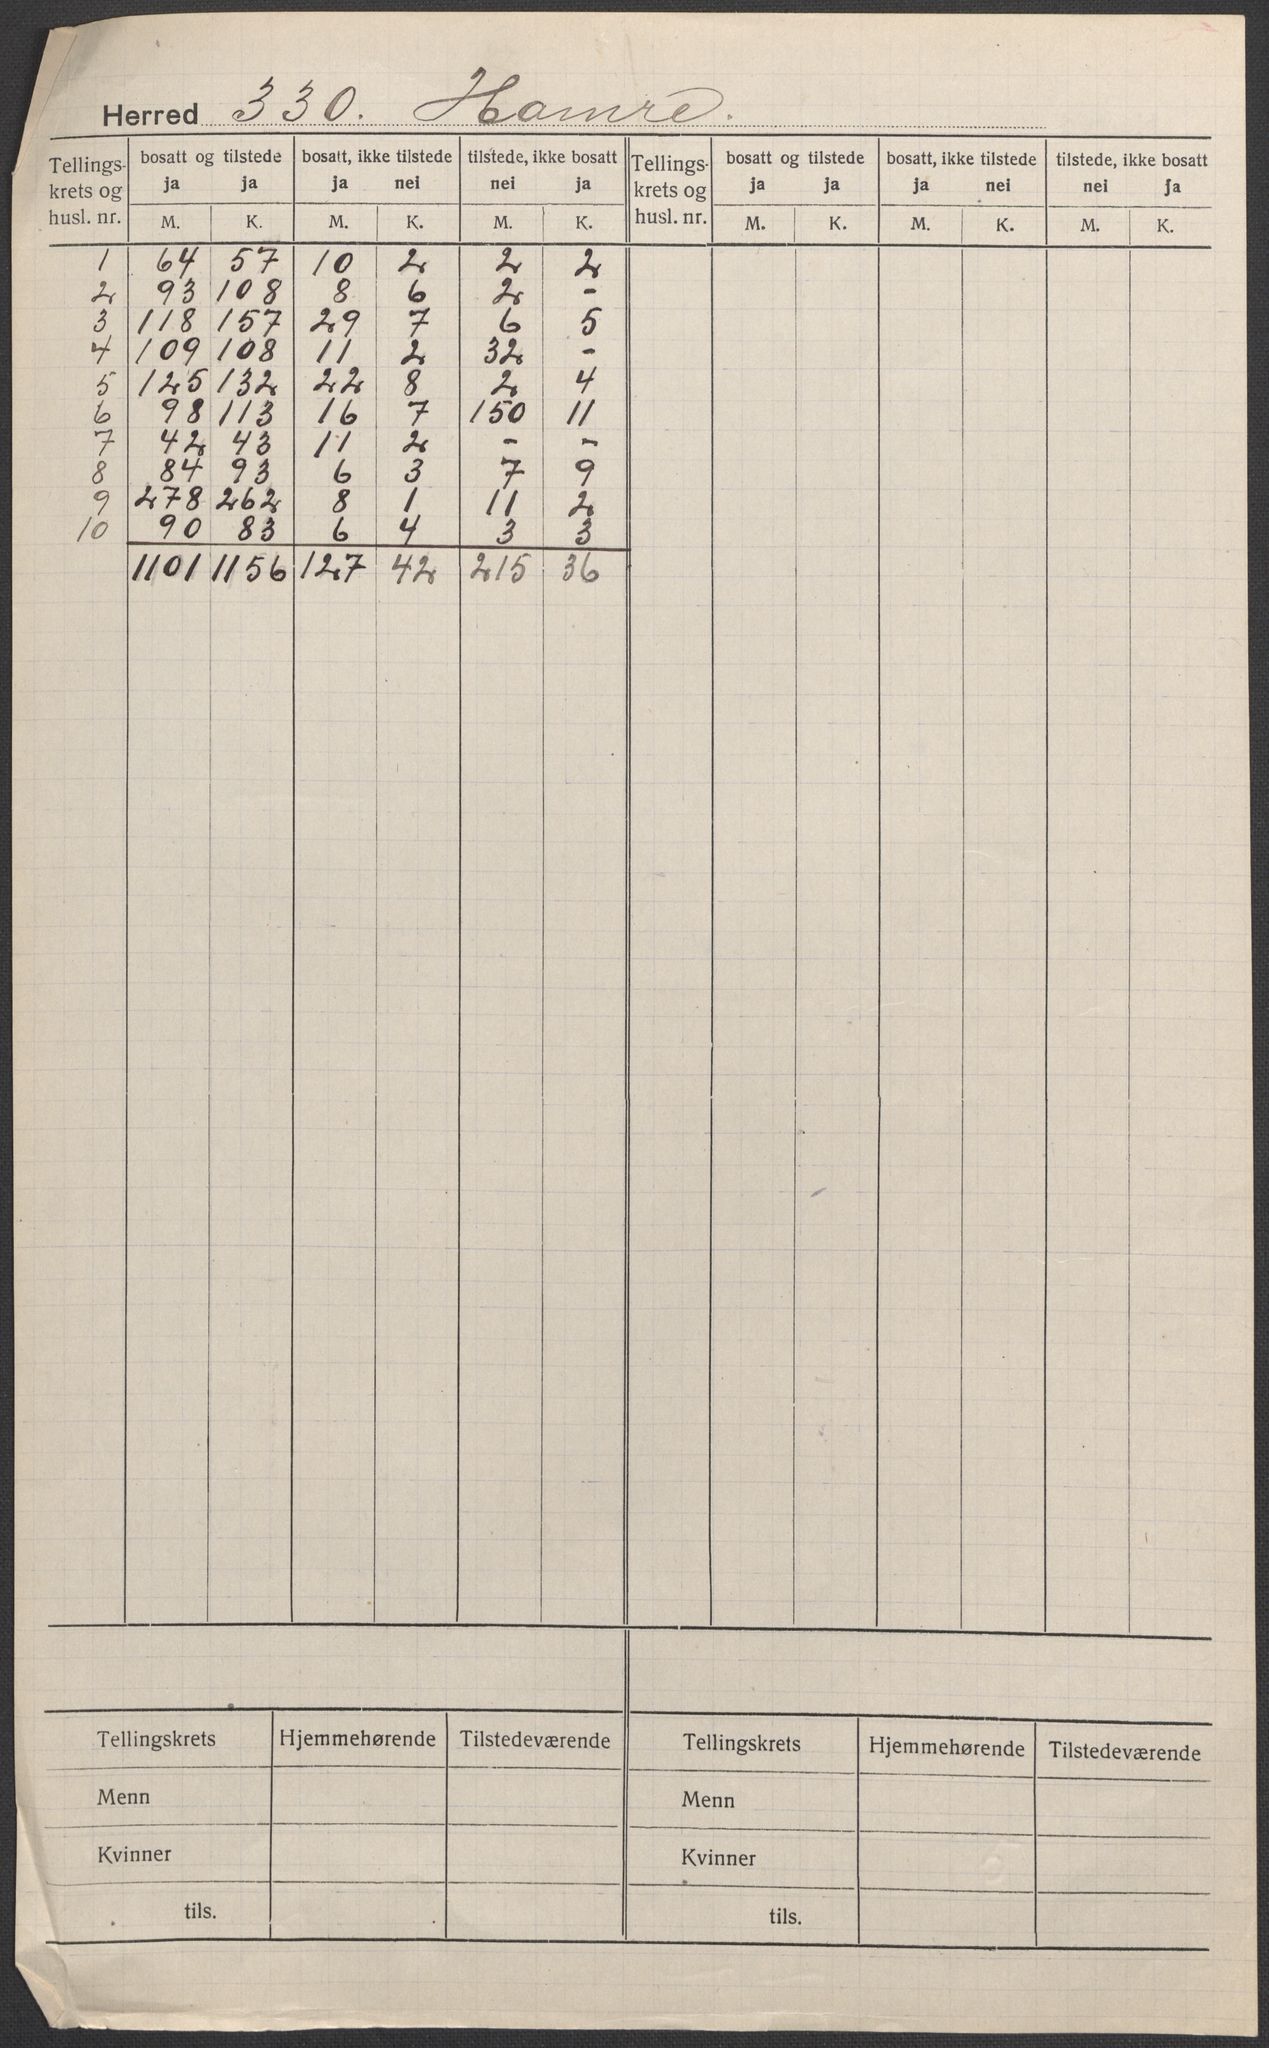 Herred 330. Hamre.
Tellings- krets og husl. nr. | bosatt og tilstede | bosatt, ikke tilstede | tilstede, ikke bosatt | Tellings- krets og husl. nr. | bosatt og tilstede | bosatt, ikke tilstede | tilstede, ikke bosatt
ja ja | ja nei | nei ja | ja ja | ja nei | nei ja
M. K. M. K. M. K. M. K. M. K. M. K.
1 64 57 10 2 2 2
2 93 108 8 6 2 -
3 118 157 29 7 6 5
4 109 108 11 2 32 -
5 125 132 22 8 2 4
6 98 113 16 7 150 11
7 42 43 11 2 - -
8 84 93 6 3 7 9
9 278 262 8 1 11 2
10 90 83 6 4 3 3
1101 1156 127 42 215 36
Tellingskrets Hjemmehørende Tilstedeværende Tellingskrets Hjemmehørende Tilstedeværende
Menn Menn
Kvinner Kvinner
tils. tils.